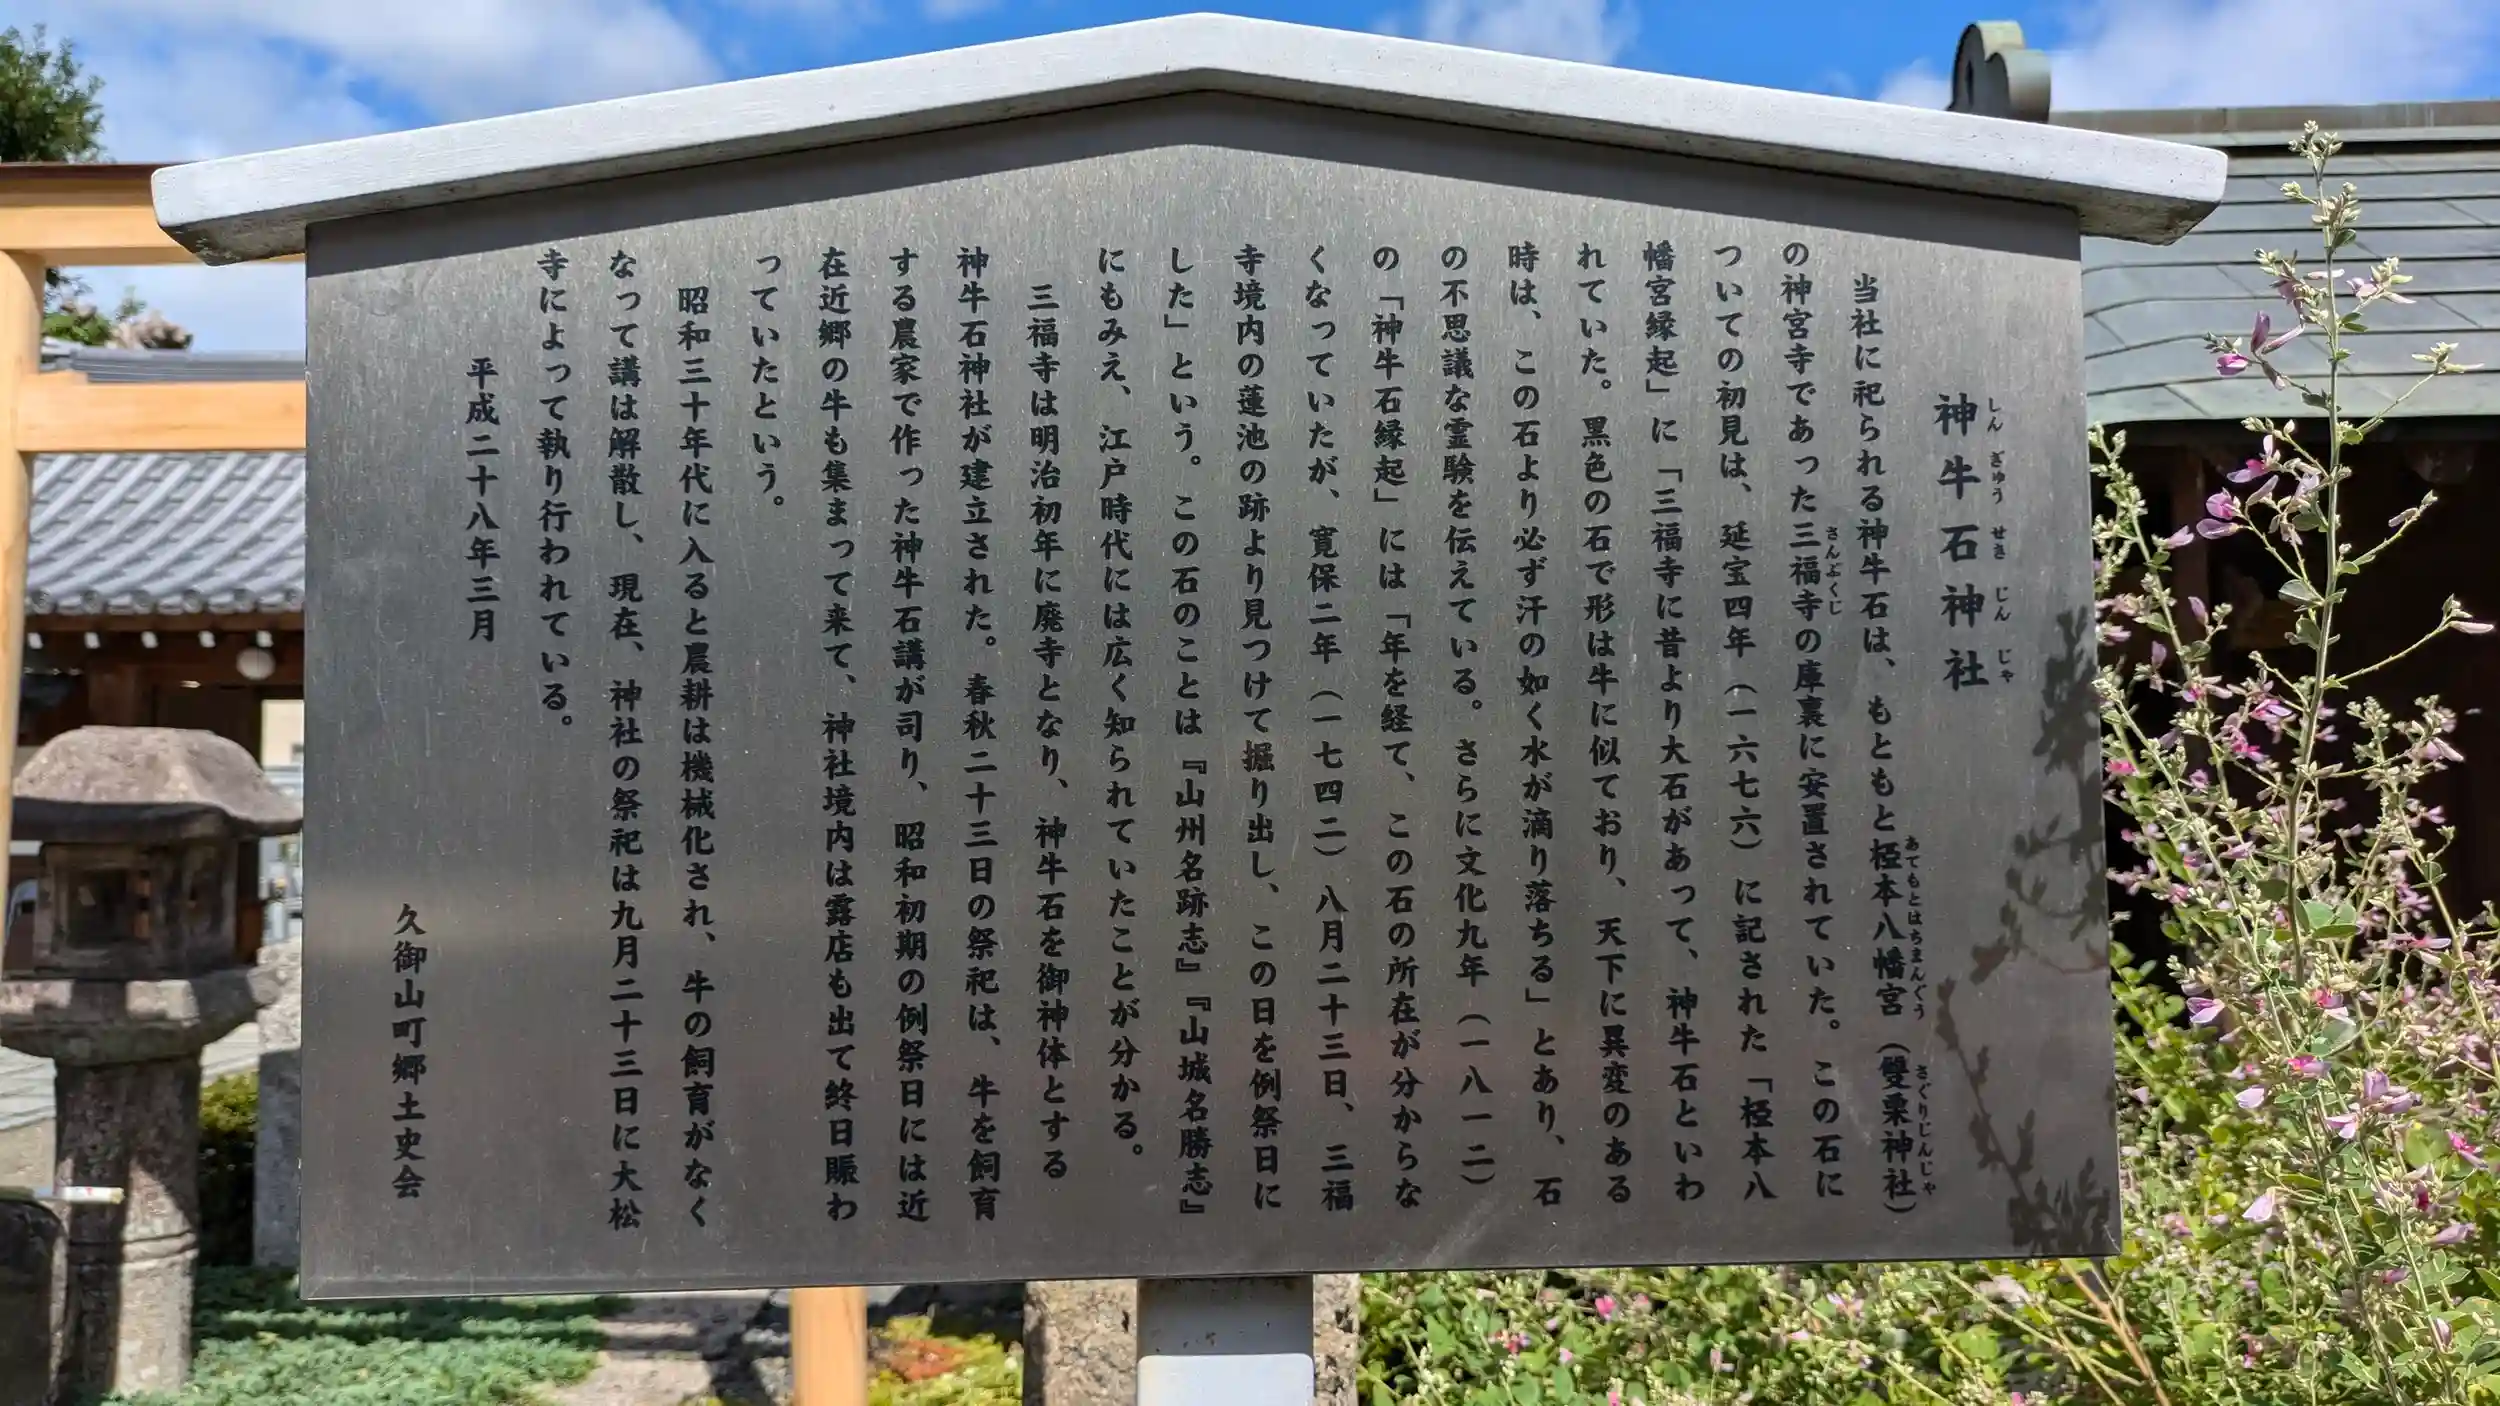 神牛石神社
しんぎゅうせきじんじゃ
当社に祀られる神牛石は、もともと桎本八幡宮（雙栗神社）
あてもとはちまんぐう
さぐりじんじゃ
の神宮寺であった三福寺の庫裏に安置されていた。この石に
さんぷくじ
ついての初見は、延宝四年（一六七六）に記された「桎本八
幡宮縁起」に「三福寺に昔より大石があって、神牛石といわ
れていた。黒色の石で形は牛に似ており、天下に異変のある
時は、この石より必ず汗の如く水が滴り落ちる」とあり、石
の不思議な霊験を伝えている。さらに文化九年（一八一二）
の「神牛石縁起」には「年を経て、この石の所在が分からな
くなっていたが、寛保二年（一七四二）八月二十三日、三福
寺境内の蓮池の跡より見つけて掘り出し、この日を例祭日に
した」という。この石のことは『山州名跡志』『山城名勝志』
にもみえ、江戸時代には広く知られていたことが分かる。
三福寺は明治初年に廃寺となり、神牛石を御神体とする
神牛石神社が建立された。春秋二十三日の祭祀は、牛を飼育
する農家で作った神牛石講が司り、昭和初期の例祭日には近
在近郷の牛も集まって来て、神社境内は露店も出て終日賑わ
っていたという。
昭和三十年代に入ると農耕は機械化され、牛の飼育がなく
なって講は解散し、現在、神社の祭祀は九月二十三日に大松
寺によって執り行われている。
平成二十八年三月
久御山町郷土史会